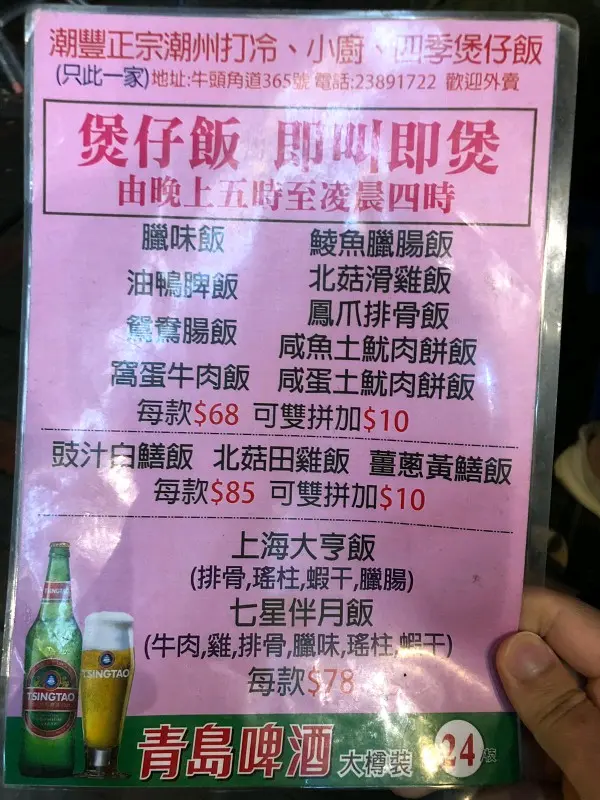 潮豐正宗潮州打冷、小廚、四季煲仔飯
(只此一家)地址:牛頭角道365號 電話:23891722 歡迎外賣
煲仔飯 即叫即煲
由晚上五時至凌晨四時
臘味飯 鯪魚臘腸飯
油鴨脾飯 北菇滑雞飯
鴛鴦腸飯 鳳爪排骨飯
窩蛋牛肉飯 咸魚土魷肉餅飯
咸蛋土魷肉餅飯
每款$68 可雙拼加$10
豉汁白鱔飯 北菇田雞飯 薑蔥黃鱔飯
每款$85 可雙拼加$10
上海大亨飯
(排骨,瑤柱,蝦干,臘腸)
七星伴月飯
(牛肉,雞,排骨,臘味,瑤柱,蝦干)
每款$78
TSINGTAO
TSINGTAO
青島啤酒 大樽裝 $24枝